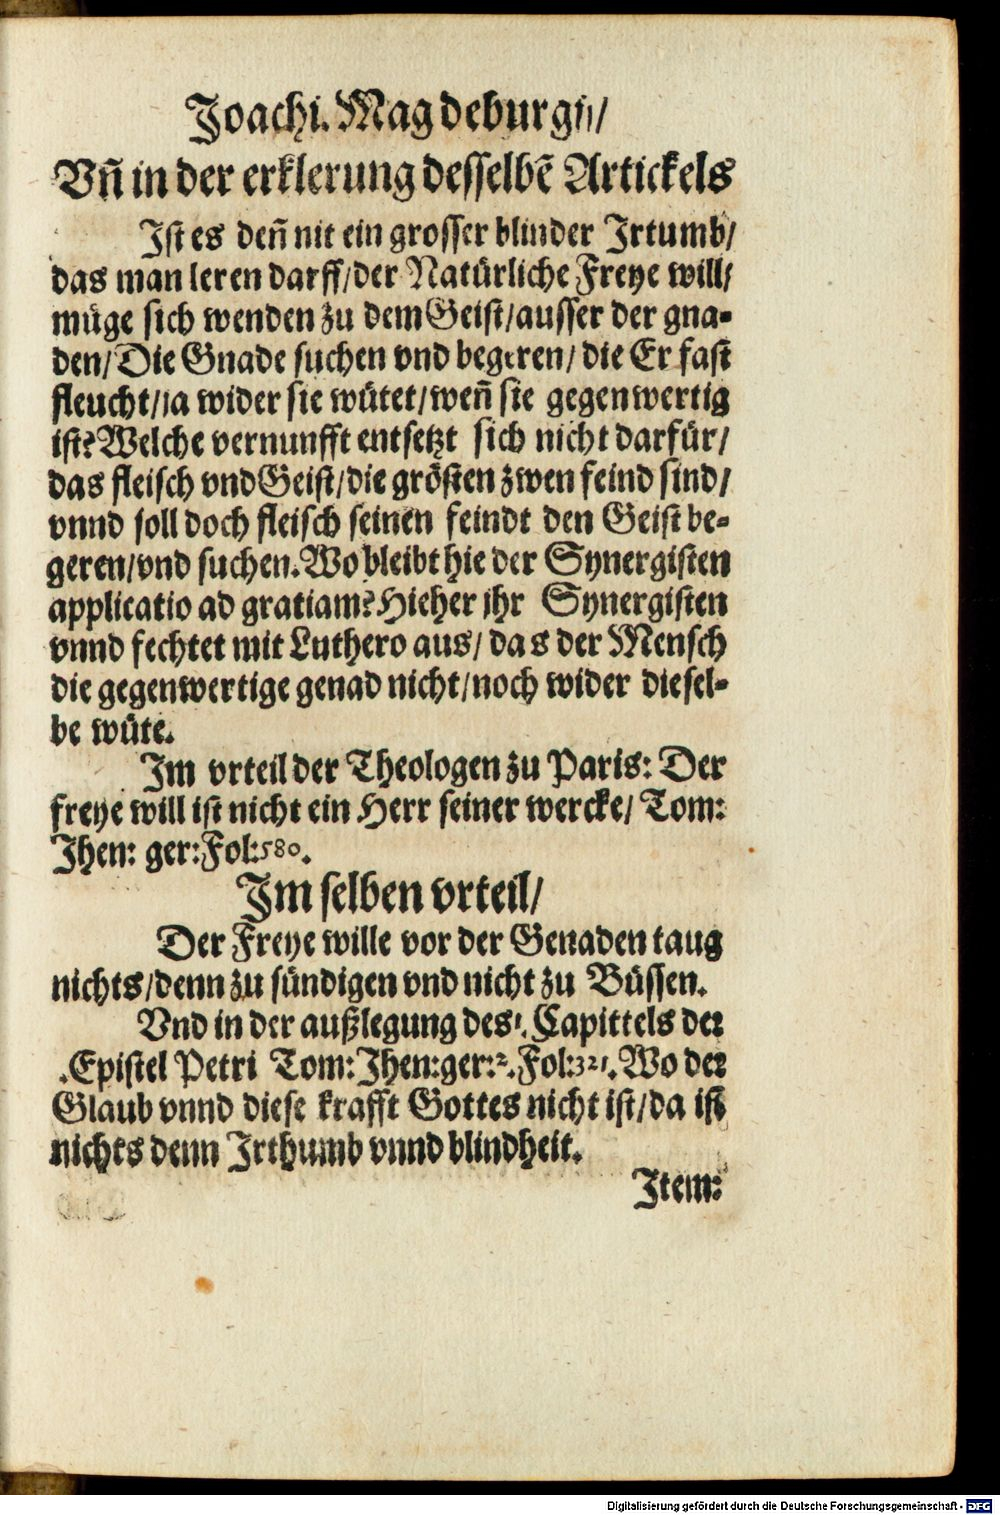 Joachi. Magdeburgij/
Vñ in der erklerung desselbẽ Artickels
Ist es deñ nit ein grosser blinder Irtumb/
das man leren darff/der Natürliche Freye will/
müge sich wenden zu dem Geist/ausser der gna-
den/Die Gnade suchen vnd begeren/die Er fast
fleucht/ja wider sie wütet/weñ sie gegenwertig
ist? Welche vernunfft entsetzt sich nicht darfür/
das fleisch vnd Geist/die grösten zwen feind sind/
vnnd soll doch fleisch seinen feindt den Geist be-
geren/vnd suchen. Wo bleibt hie der Synergisten
applicatio ad gratiam? Hieher jhr Synergisten
vnnd fechtet mit Luthero aus/das der Mensch
die gegenwertige genad nicht/noch wider diesel-
be wüte.
Im vrteil der Theologen zu Paris: Der
freye will ist nicht ein Herr seiner wercke/Tom:
Jhen: ger: Fol: 580.
Im selben vrteil/
Der Freye wille vor der Genaden taug
nichts/denn zu sündigen vnd nicht zu Büssen.
Vnd in der außlegung des 1. Capittels der
.Epistel Petri Tom: Jhen: ger: 2. Fol: 321. Wo der
Glaub vnnd diese krafft Gottes nicht ist/da ist
nichts denn Irthumb vnnd blindheit.
Item:
Digitalisierung gefördert durch die Deutsche Forschungsgemeinschaft - DFG